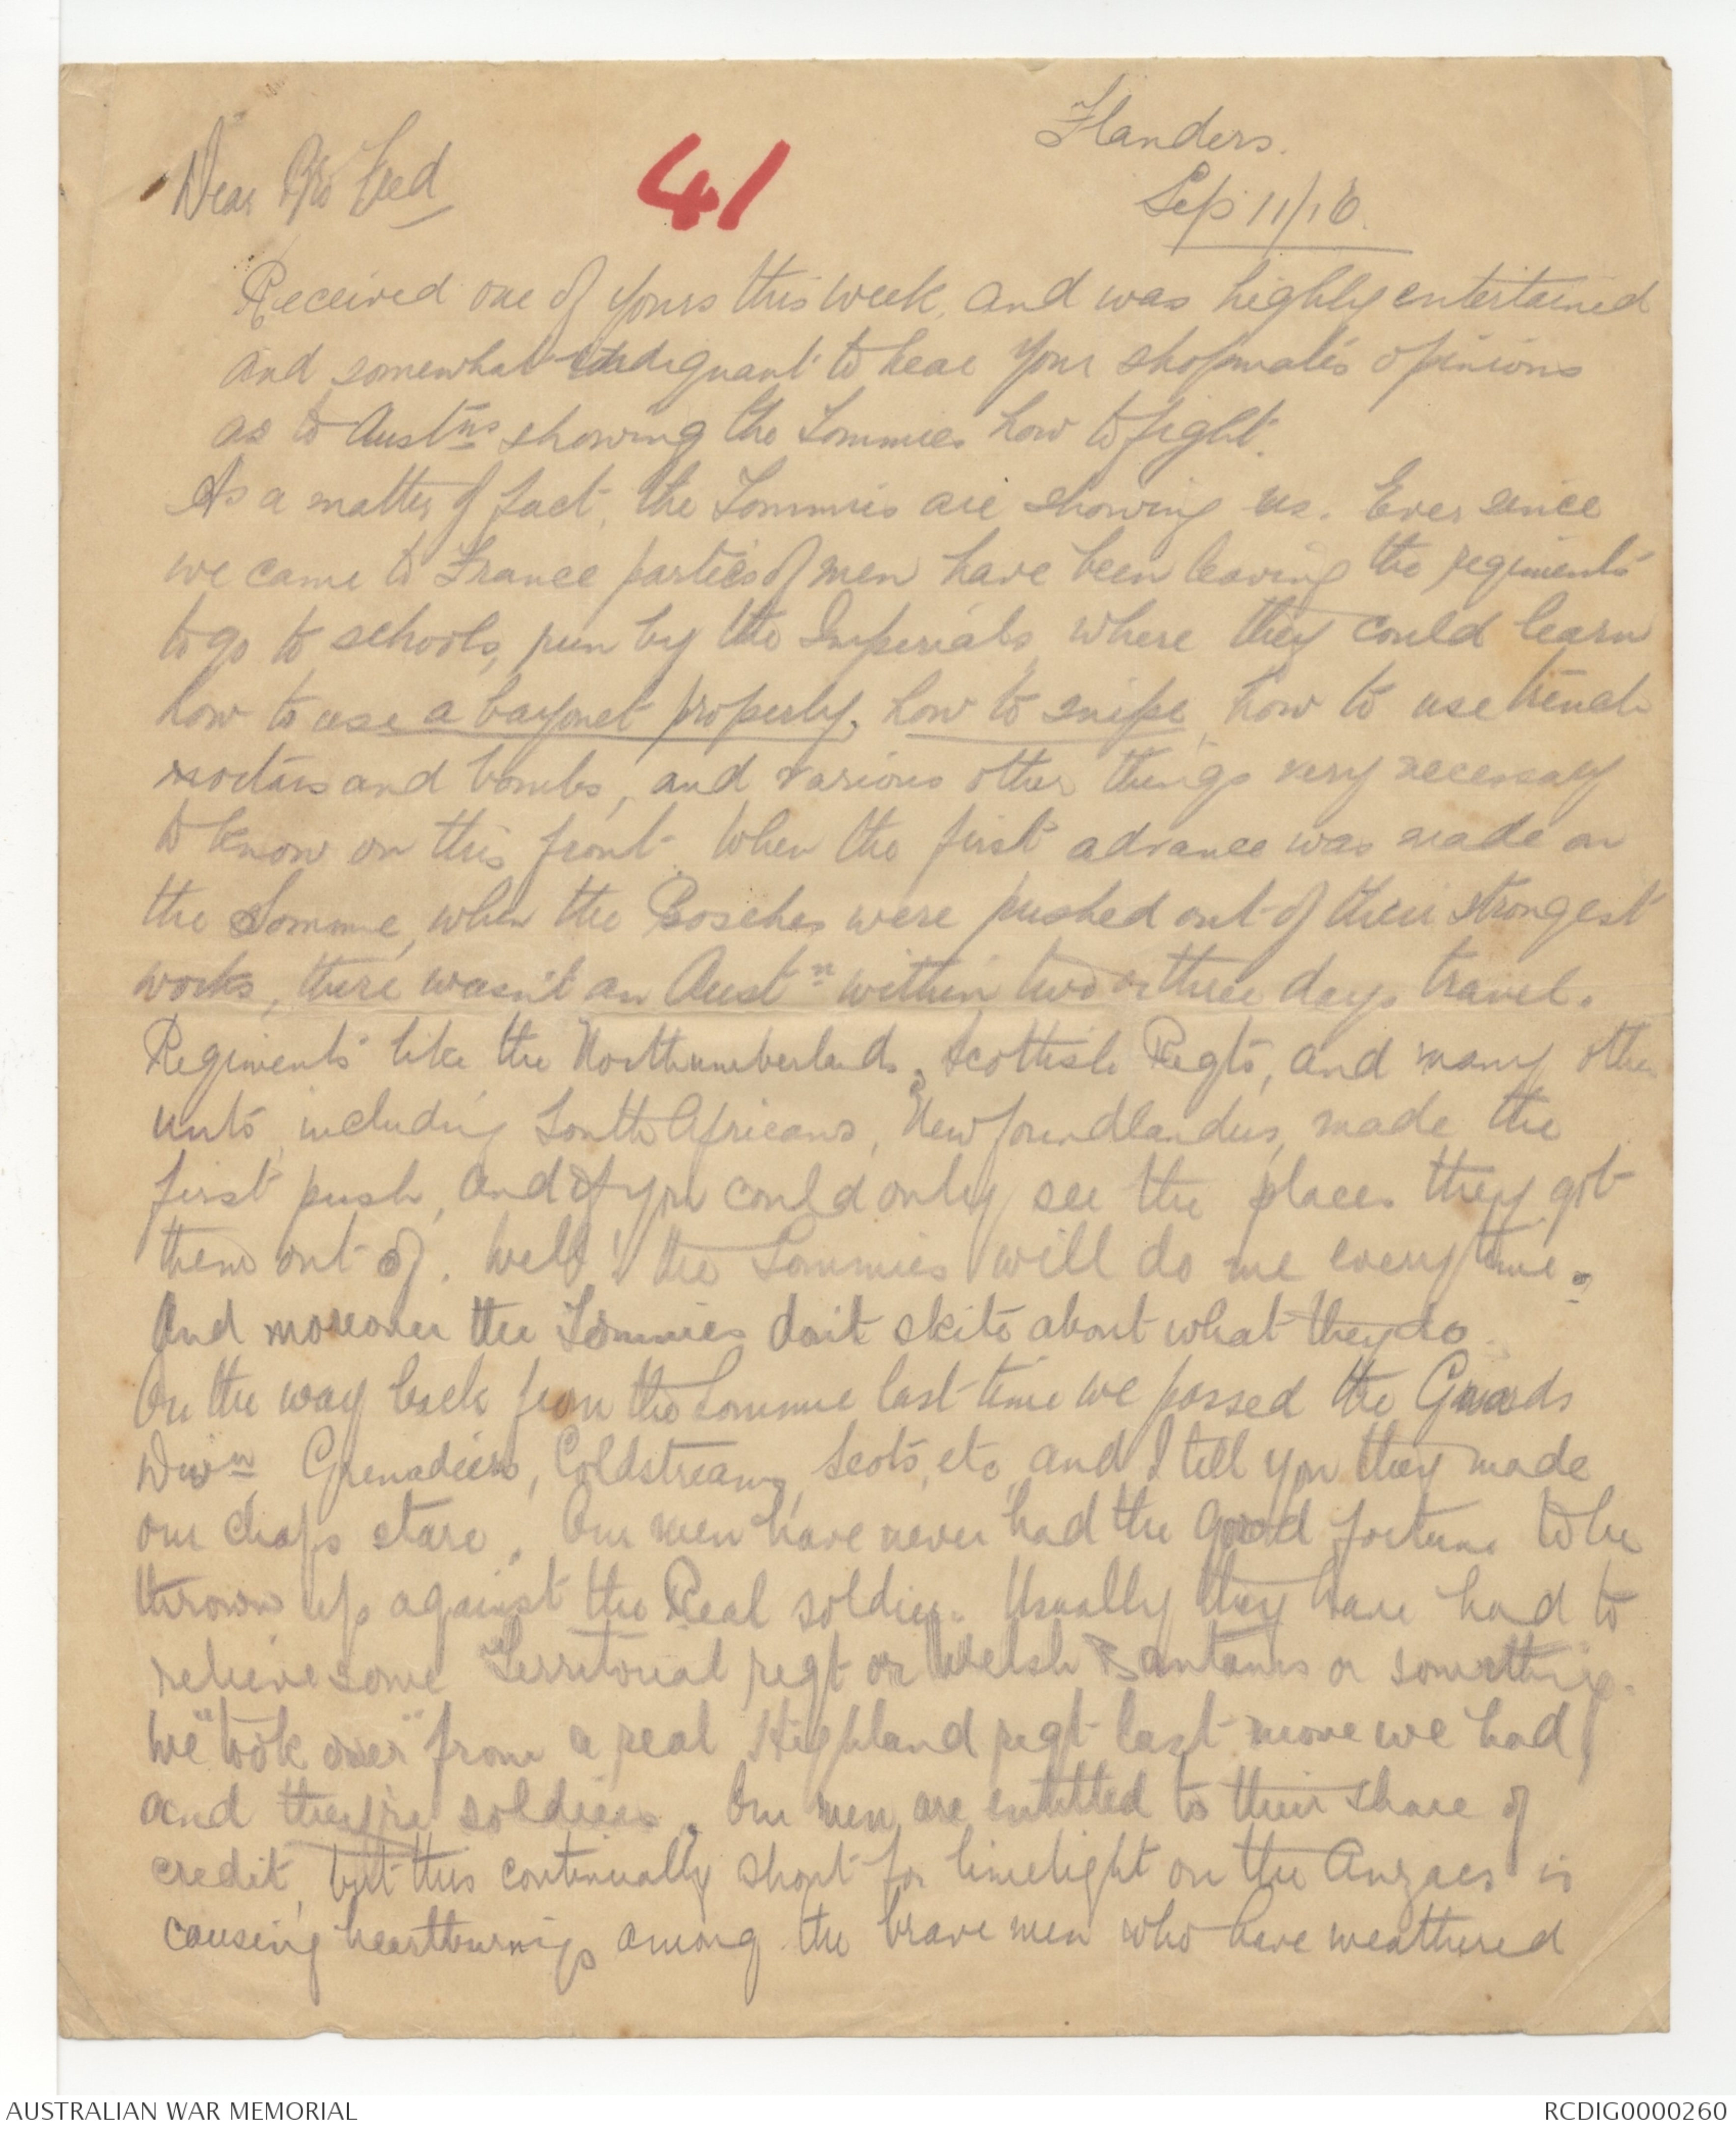 Flanders.
Sep 11/16.
Dear Bro Fred
41
Received one of yours this week, and was highly entertained
and somewhat indignant to hear your shopmate's opinions
as to Austns showing the Tommies how to fight.
As a matter of fact, the Tommies are showing us. Ever since
we came to France parties of men have been leaving the regiments
to go to schools, run by the Imperials, where they could learn
how to use a bayonet properly, how to snipe, how to use trench
mortars and bombs, and various other things very necessary
to know on this front. When the first advance was made on
the Somme, when the Bosches were pushed out of their strongest
works, there wasn't an Austn within two or three days travel.
Regiments like the Northumberlands, Scottish Regts, and many other
units, including South Africans, Newfoundlanders, made the
first push, and if you could only see the places they got
them out of. Well! the Tommies will do me everytime.
And moreover the Tommies don't skite about what they do.
On the way back from the Somme last time we passed the Guards
Divn, Grenadiers, Coldstreams, Scots, etc, and I tell you they made
our chaps stare. Our men have never had the good fortune to be
thrown up against the Real soldier. Usually they have had to
relieve some Territorial regt or Welsh Bantams or something.
We "took over" from a real Highland regt last move we had,
and they're soldiers. Our men are entitled to their share of
credit, but this continually shout for limelight on the Anzacs is
causing heartburnings among the brave men who have weathered
AUSTRALIAN WAR MEMORIAL
RCDIG0000260